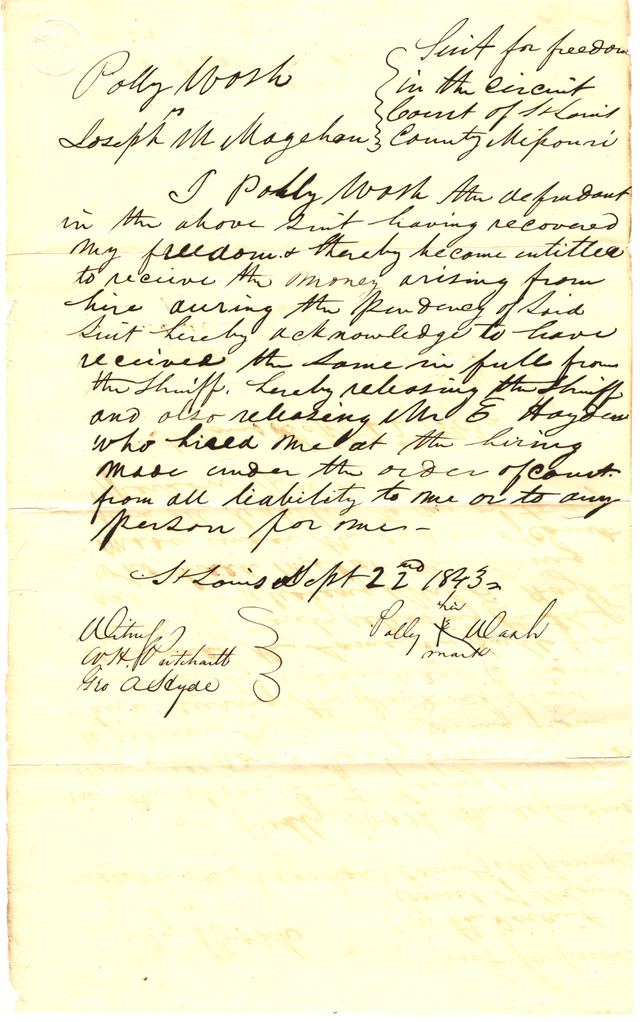 Polly Wash
vs
Joseph M Magehan
Suit for freedom
in the circuit
Court of St Louis
County Missouri
I Polly Wash the defendant
in the above suit having recovered
my freedom & thereby become entitled
to receive the money arising from
hire during the pendency of said
suit hereby acknowledge to have
received the same in full from
the Sheriff. hereby releasing the Sheriff
and also releasing Mr E Hayden
who hired me at the hiring
made under the order of court
from all liability to me or to any
person for me —
St Louis Sept 22nd 1843
Polly her X Wash
mark
Witness
W.H. Pritchartt
Geo A Hyde